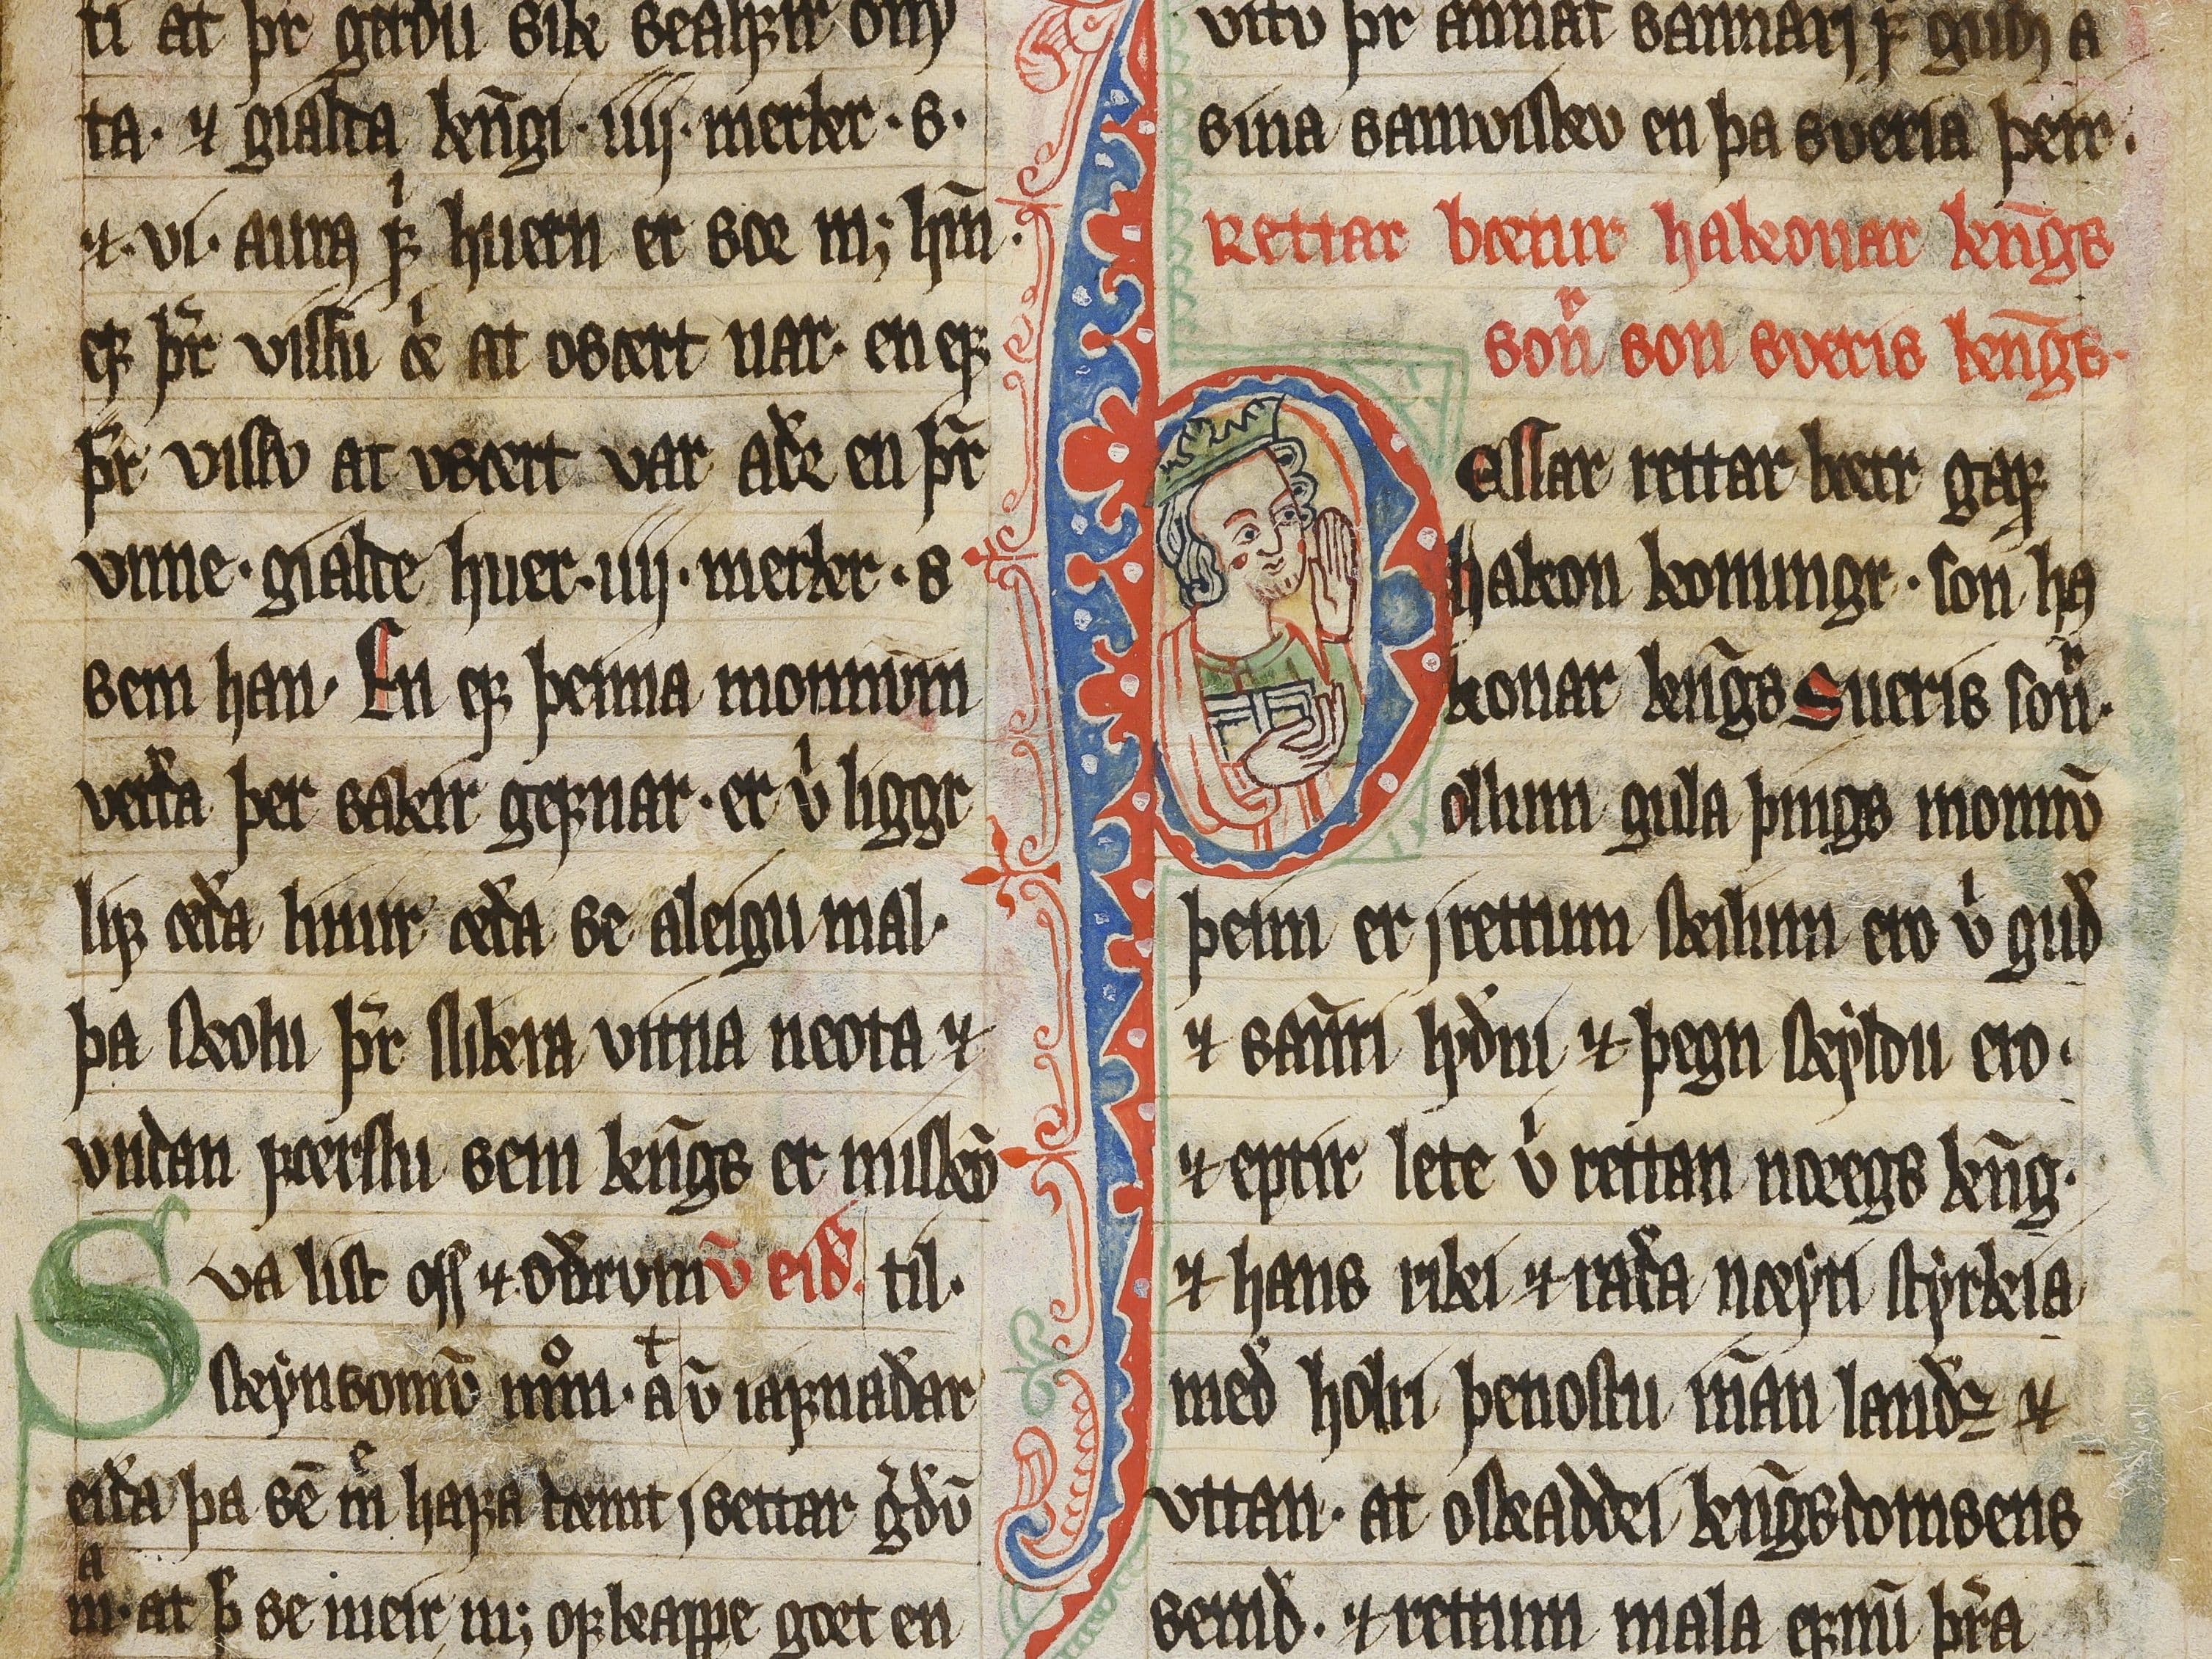 ti at þr gerdu sik sealfir om
ta. ⁊ gialda kŋ̄gi. iiij. merker. s.
⁊. vi. aura f huern er sœr mꝫ hm̄.
ef þr vissu œ at osœrt uar. en ef
þr visso at vsœrt var adr en þr
vnne. gialde huer. iiij. merker. s
sem han. En ef þenna monnum
verda þer sakir gefnar. er v liggr
lif œda limir œda se aleigu mal.
þa skolu þr slikra vittna neota ⁊
vndan fœrslu sem kn̄gs er miskū
Sva list oss ⁊ odrum v̄ eid. til.
skynsomū mm. a v̄ iafnadar
eida þa sē m hafa dœmt j settar gdū
m. at h se meir mꝫ ofkappe gœt en
vitv þr annat sannarj f gudj a
sina samvisko en þa sveria þeir.
Rettar bœtur hakonar kn̄gs
son son sveris kn̄gs.
Þessar rettar bœtr gaf
hakon konungr. son ha
konar kn̄gs Sueris son.
ollum gula þings monnū
þeim er j rettum skilum ero v gud
⁊ sanni lydni ⁊ þegn skyldu ero.
⁊ eptir lete v rettan noregs kn̄g.
⁊ hans riki ⁊ rada nœyti styrkia
med hollri þenostu innan landz ⁊
vttan. at oskaddri kn̄gsdomsens
semd. ⁊ rettum mala efnū þra